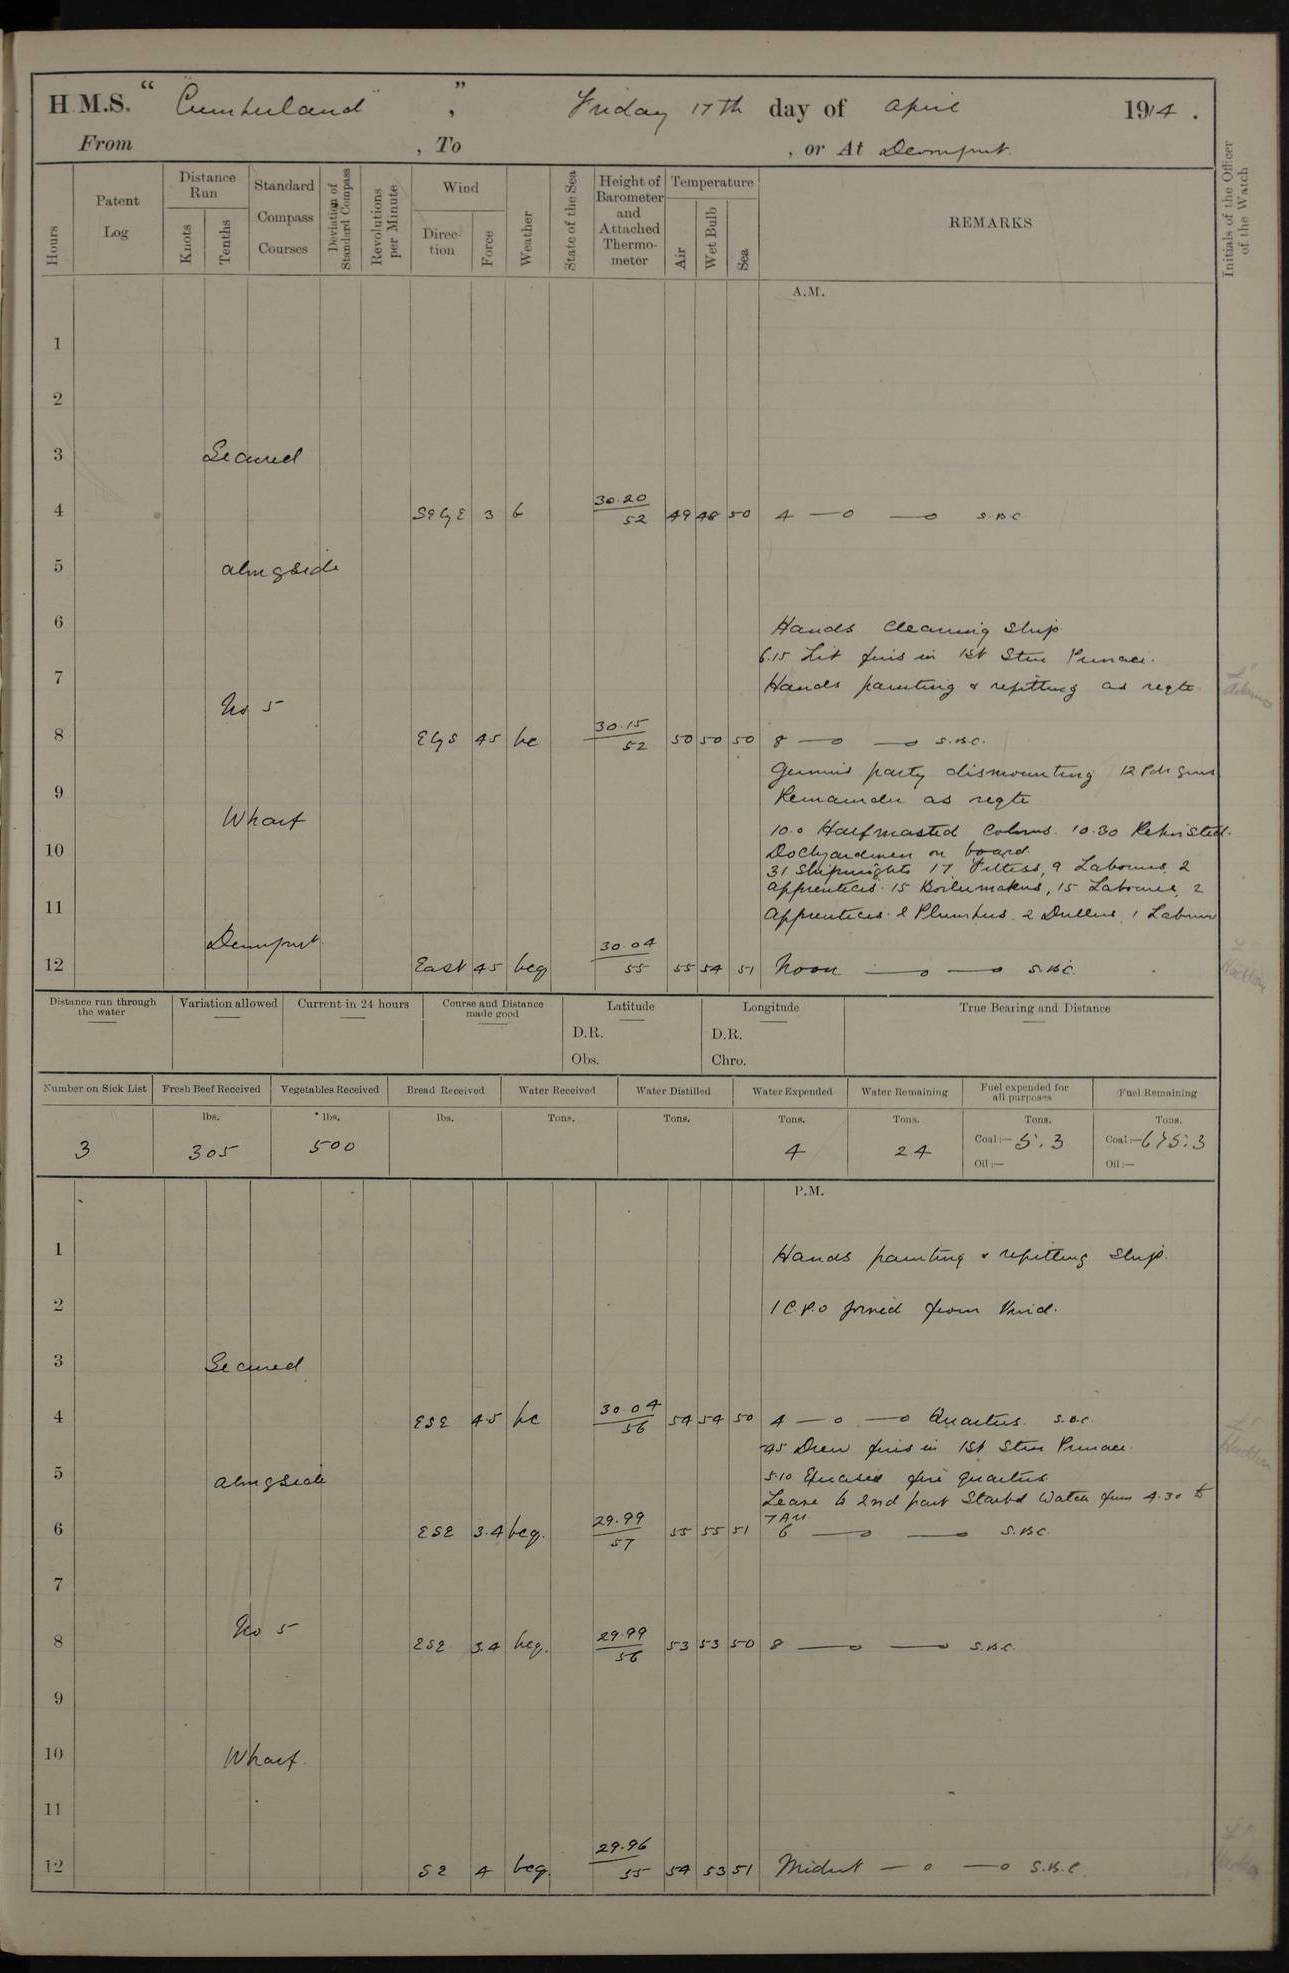 H.M.S. "Cumberland", Friday 17th day of April 1914.
From , To , or At Devonport.
Hours
Patent Log
Distance Run
Knots
Tenths
Standard Compass Courses
Deviation of Standard Compass
Revolutions per Minute
Wind
Direction
Force
Weather
State of the Sea
Height of Barometer and Attached Thermometer
Temperature
Air
Wet Bulb
Sea
REMARKS
Initials of the Officer of the Watch
A.M.
1
2
3 Secured
4 3 b 30.20 52 49 48 50 4 —o —o S.B.C
5 alongside
6 Hands cleaning ship
6.15 Lit fires in 1st Stm Pinnace.
7 Hands painting & refitting as reqte
No 5
8 E y S 45 bc 30.15 52 50 50 50 8 —o —o S.B.C.
Gunners party dismounting 12 Pdr Guns
9 Remainder as reqte
Wharf
10.0 Halfmasted Colours. 10.30 Rehoisted.
10 Dockyardmen on board.
31 Shipwrights 17 Fitters, 9 Labourers, 2
apprentices. 15 Boilermakers, 15 Labourers, 2
11 Apprentices. 2 Plumbers. 2 Drillers, 1 Labourer
Devonport.
12 East 45 bcq 30.04 55 55 54 51 Noon —o —o S.B.C.
Distance run through the water
Variation allowed
Current in 24 hours
Course and Distance made good
Latitude
D.R.
Obs.
Longitude
D.R.
Chro.
True Bearing and Distance
Number on Sick List
Fresh Beef Received
Vegetables Received
Bread Received
Water Received
Water Distilled
Water Expended
Water Remaining
Fuel expended for all purposes
Fuel Remaining
lbs. lbs. lbs. Tons. Tons. Tons. Tons. Tons. Tons.
3 305 500 4 24 Coal:— 5.3 Coal:—
Oil:— Oil:—
P.M.
1 Hands painting & refitting ship.
2 1 C.P.O joined from Vivid.
3 Secured
4 ESE 4.5 bc 30.04 56 54 54 50 4 —o —o Quarters. S.B.C.
Drew fires in 1st Stm Pinnace.
5 alongside 5.10 Exercised fire quarters
Leave to 2nd part Starbd Watch from 4.30 to
7 AM
6 ESE 3.4 bcq. 29.99 57 55 55 51 6 —o —o S.B.C
7
No 5
8 ESE 3.4 bcq. 29.99 56 53 53 50 8 —o —o S.B.C.
9
10 Wharf.
11
12 SE 4 bcq. 29.96 55 54 53 51 Midnt —o —o S.B.C.